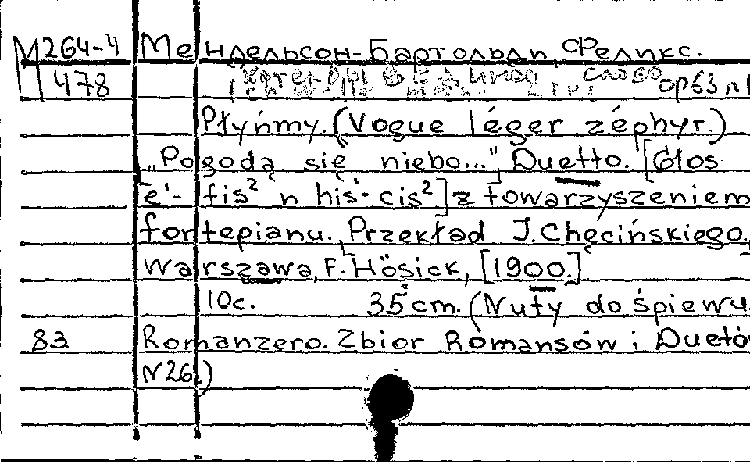 М264-4 Мендельсон-Бартольди, Феликс.
478 op63 n1
Płyńmy. (Vogue léger zéphyr.)
„Pogodą się niebo..." Duetto. [Głos
e'-fis² n his-cis²] z towarzyszeniem
fortepianu. Przekład J. Chęcińskiego,
Warszawa, F. Hösick, [1900.]
10c. 35 cm. (Nuty do śpiewu.
83 Romanzero. Zbior Romansów i Duetó
N26.)